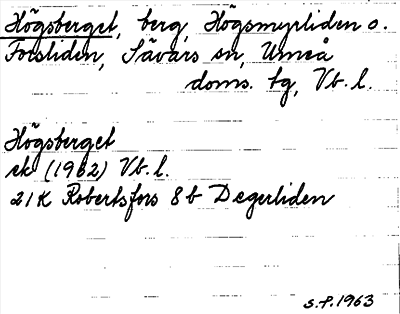 Högsberget, berg, Högsmyrliden o.
Forsliden, Sävars sn, Umeå
doms. tg, Vb. l.
Högsberget
ek (1962) Vb. l.
21K Robertsfors 8b Degerliden
S.P. 1963